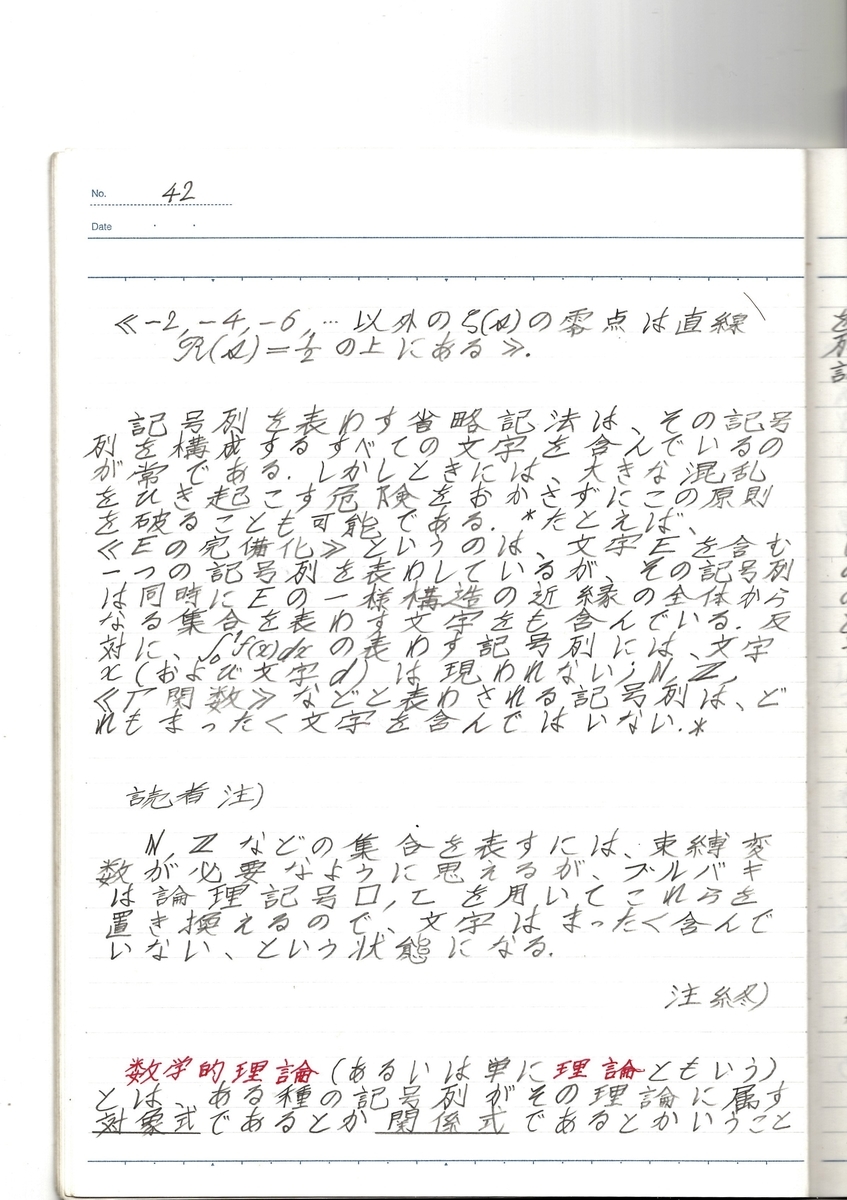 No. 42
Date
≪−2, −4, −6, … 以外の ζ(s) の零点は直線
ℛ(s) = 1/2 の上にある≫.
記号列を表わす省略記法は、その記号
列を構成するすべての文字を含んでいるの
が常である. しかしときには、大きな混乱
をひき起こす危険をおかさずにこの原則
を破ることも可能である. *たとえば、
≪Eの完備化≫というのは、文字Eを含む
一つの記号列を表わしているが、その記号列
は同時にEの一様構造の近縁の全体から
なる集合を表わす文字をも含んでいる. 反
対に、∫₀¹f(x)dx の表わす記号列には、文字
x (および文字d) は現われない; N, Z,
≪Γ関数≫などと表わされる記号列は、ど
れもまったく文字を含んではいない.*
読者注)
N, Z などの集合を表すには、束縛変
数が必要なように思えるが、ブルバキ
は論理記号□, τを用いてこれらを
置き換えるので、文字はまったく含んで
いない、という状態になる.
注終)
数学的理論 (あるいは単に理論ともいう)
とは、ある種の記号列がその理論に属す
対象式であるとか関係式であるとかいうこと
を
列
記